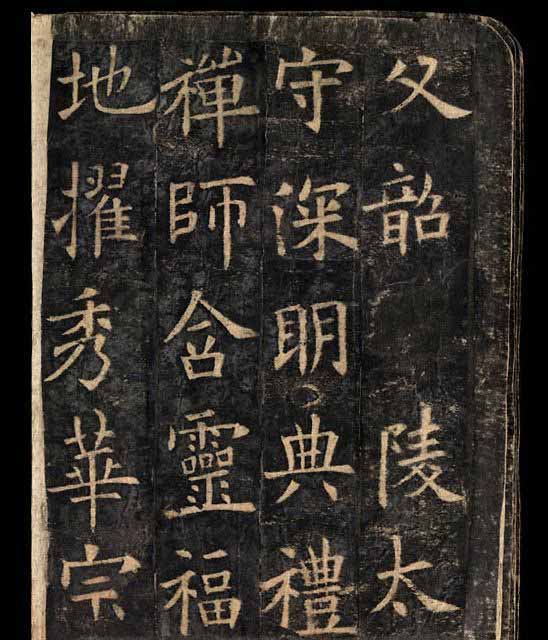 父韶陵太
守深明典禮
禪師含靈福
地擢秀華宗